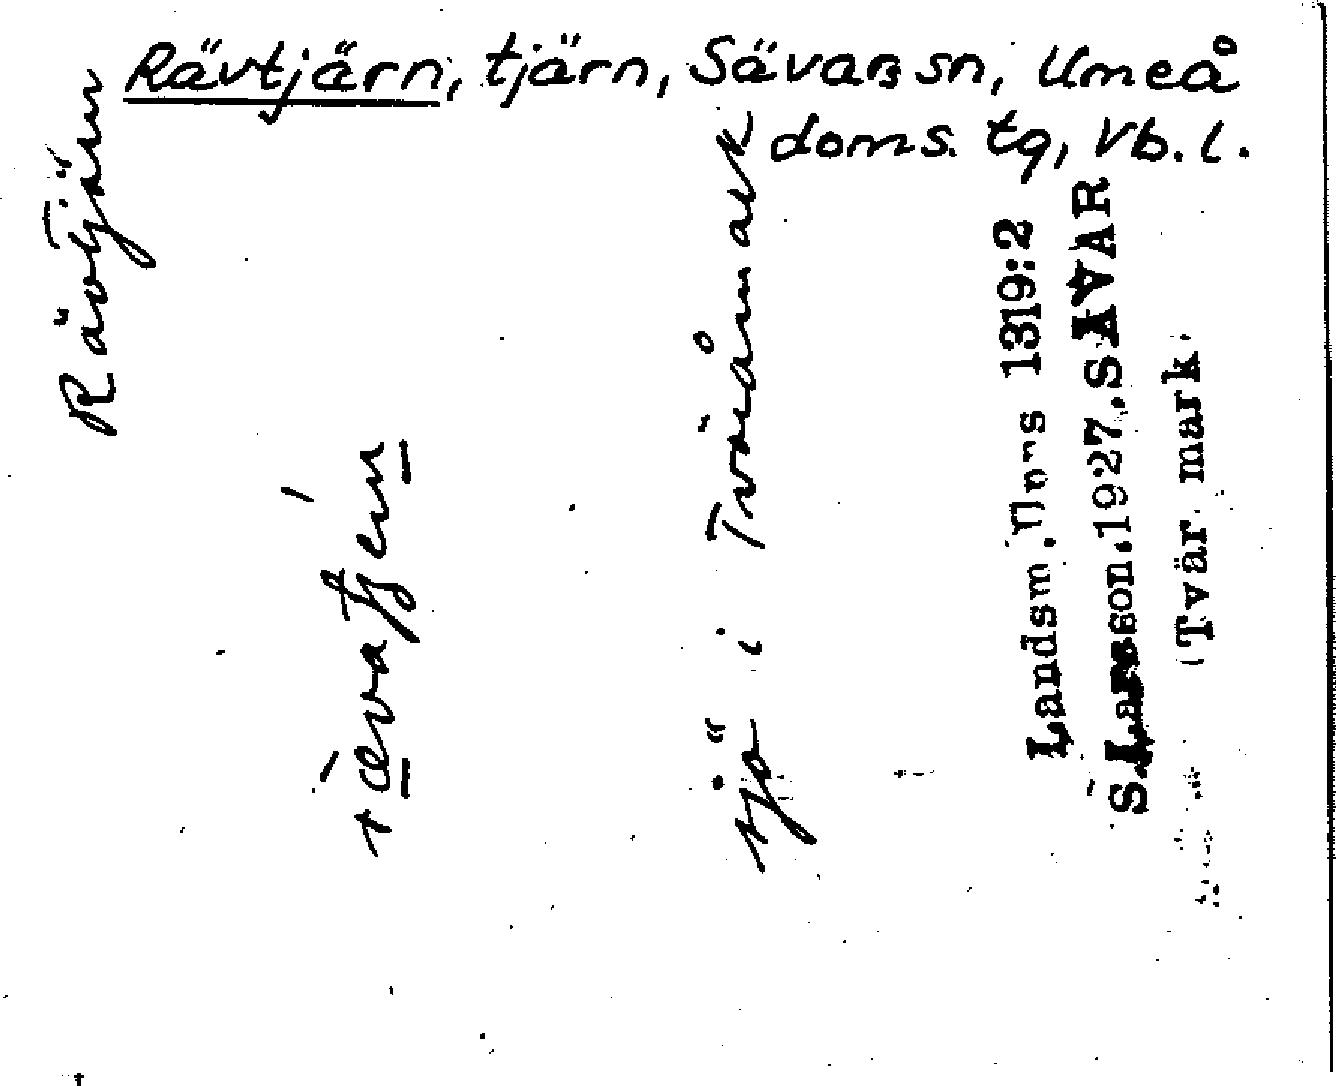 Rävtjärn, tjärn, Sävars sn, Umeå
doms. tg, Vb. l.
Rävtjärn
rævatjen
sjö i Tväråmark
Landsm. Upps 1319:2
S.Larsson.1927.SÄVAR
(Tvär mark.